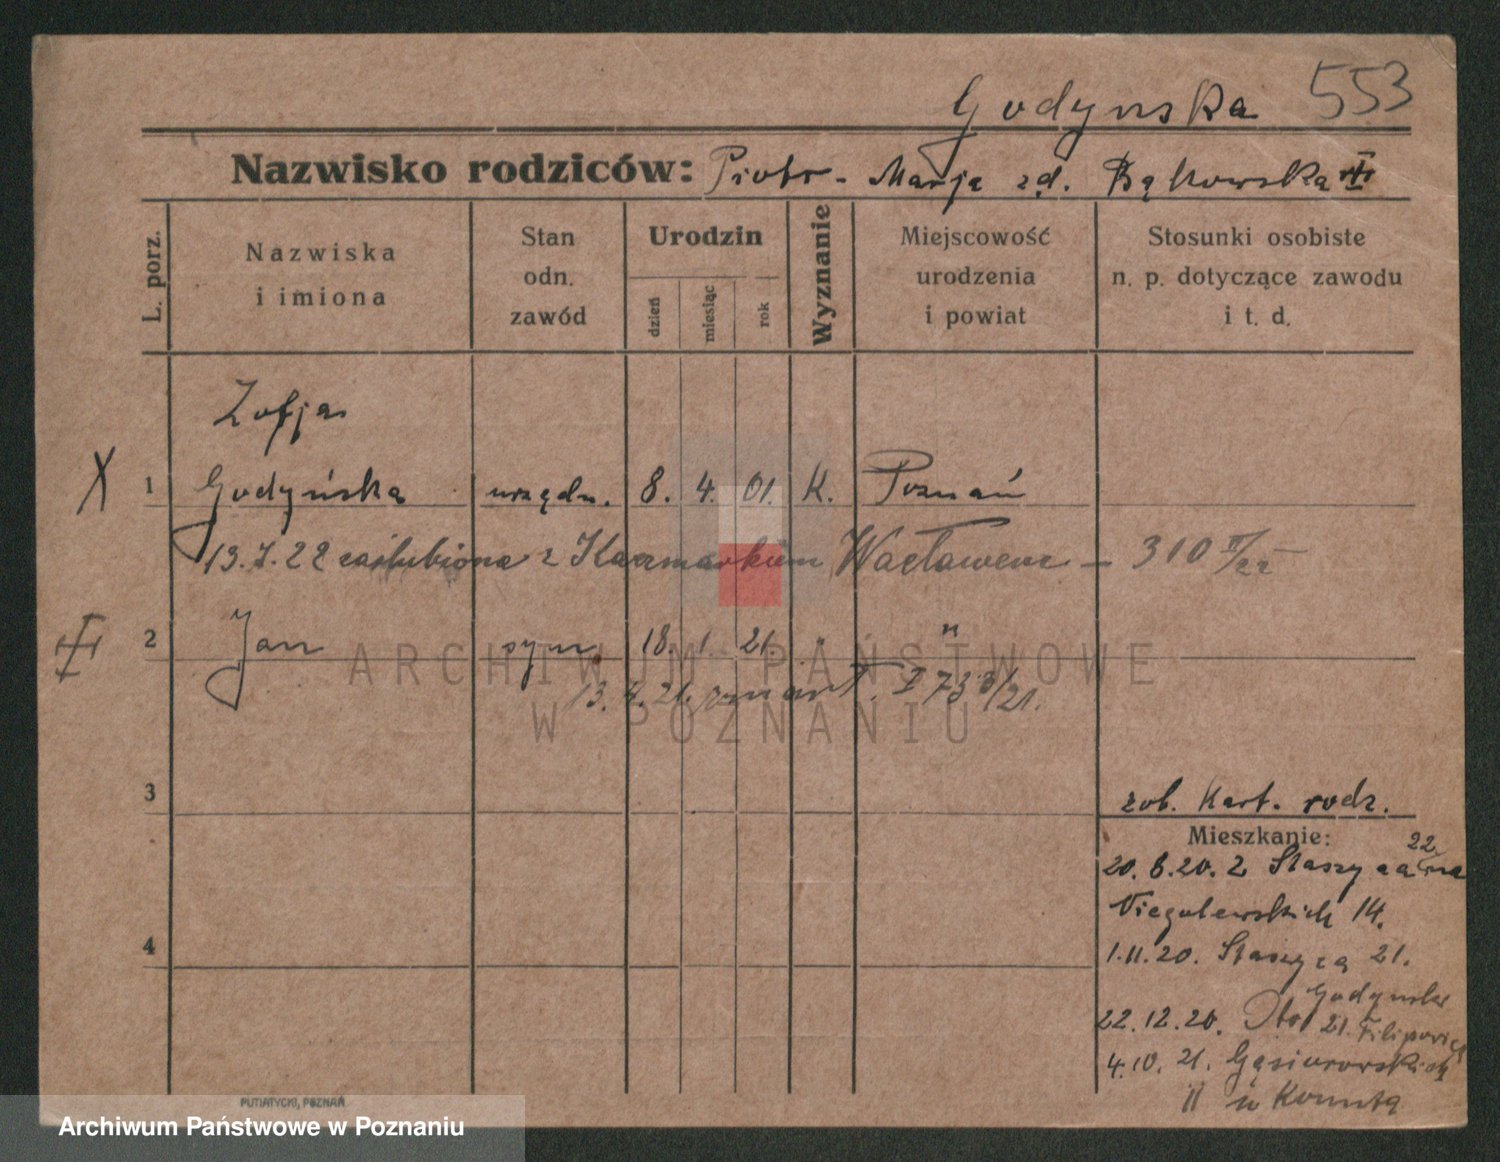 Godynska 553
Nazwisko rodziców: Piotr - Marja zd. Bąkowska
L. porz.
Nazwiska
i imiona
Stan
odn.
zawód
Urodzin
dzień
miesiąc
rok
Wyznanie
Miejscowość
urodzenia
i powiat
Stosunki osobiste
n. p. dotyczące zawodu
i t. d.
Zofja
X 1 Godyńska urzędn. 8. 4. 01. K. Poznań
13.7.22 zaślubiona z Kaczmarkiem Wacławem - 310
2 Jan syn 18. 1. 21. " "
13. 7. 21. zmarł.
3
zob. Kart. rodz.
Mieszkanie:
22.
20. 8. 20. z Staszyca na
Niegolewskich 14.
4
1.11.20. Staszyca 21.
Godynska
22. 12. 20. 21. Filipowicz
4. 10. 21. Gąsiorowskich
11 u Konuta
PUTIATYCKI, POZNAŃ
ARCHIWUM PAŃSTWOWE
W POZNANIU
Archiwum Państwowe w Poznaniu